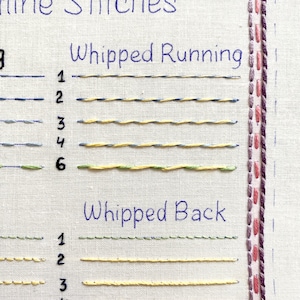 Stitches
Whipped Running
1
2
3
4
6
Whipped Back
1
2
3